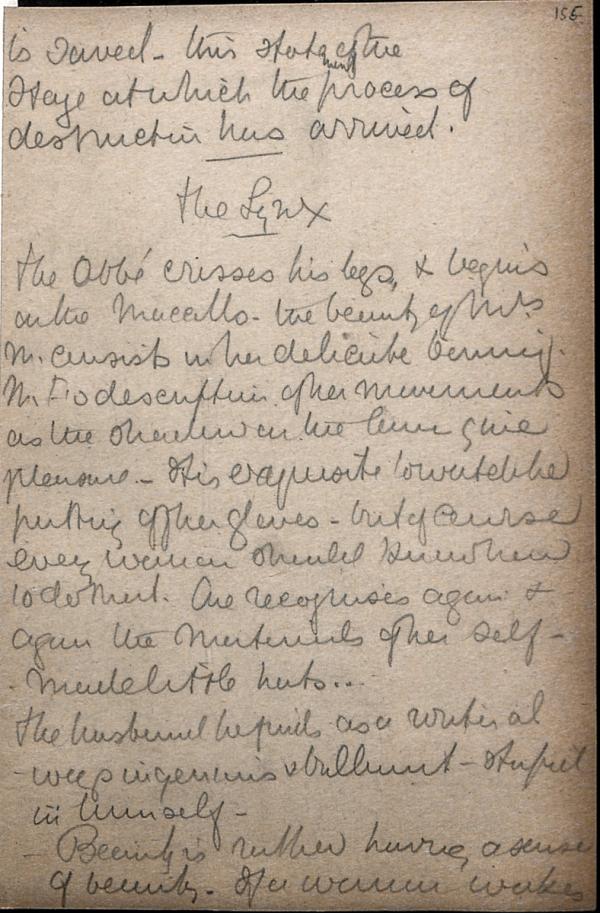 155
is saved - this statement of the
stage at which the process of
destruction has arrived.
The Lynx
The Abbé crosses his legs, & begins
on the Macallo - the beauty of Mrs
M. consists in her delicate
M. F's description of her movements
as the shadow on the lawn give
pleasure - It is exquisite to watch her
putting off her gloves - but of course
every woman should know how
to do that. One recognises again &
again the materials of her self-
made little hats...
The husband he finds as a writer al-
ways ingenious & brilliant - stupid
in himself -
- Beauty is rather having a sense
of beauty. If a woman makes